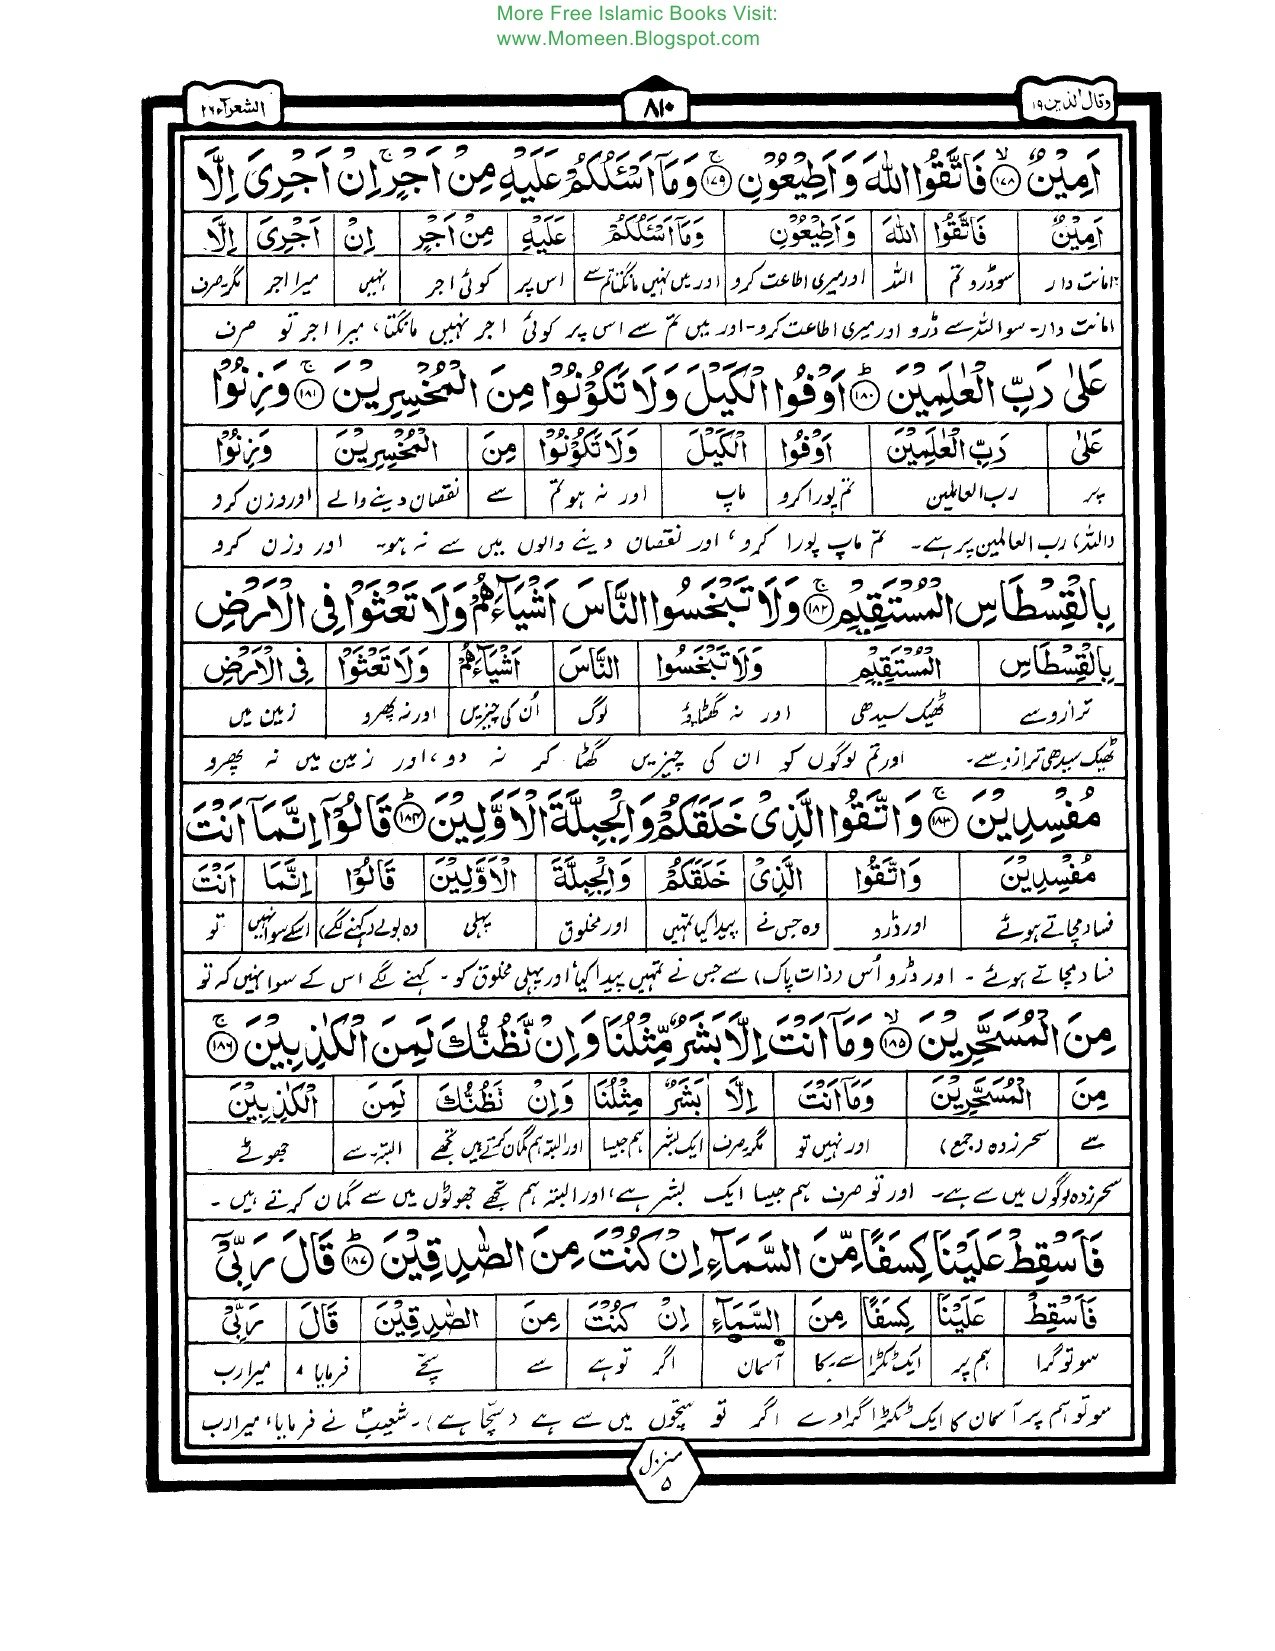 More Free Islamic Books Visit:
www.Momeen.Blogspot.com
وقال الذین ۱۹
۸۱۰
الشعرآء ۲۶
اَمِیْنٌ ۙ﴿۱۷۸﴾ فَاتَّقُوا اللّٰهَ وَ اَطِیْعُوْنِ ۚ﴿۱۷۹﴾ وَ مَاۤ اَسْـَٔلُكُمْ عَلَیْهِ مِنْ اَجْرٍ ۚ اِنْ اَجْرِیَ اِلَّا
اَمِیْنٌ فَاتَّقُوا اللّٰهَ وَاَطِیْعُوْنِ وَمَاۤ اَسْـَٔلُكُمْ عَلَیْهِ مِنْ اَجْرٍ اِنْ اَجْرِیَ اِلَّا
امانت دار سو ڈرو تم اللہ اور میری اطاعت کرو اور میں نہیں مانگتا تم سے اس پر کوئی اجر نہیں میرا اجر مگر صرف
امانت دار۔ سو اللہ سے ڈرو اور میری اطاعت کرو۔ اور میں تم سے اس پر کوئی اجر نہیں مانگتا، میرا اجر تو صرف
عَلٰی رَبِّ الْعٰلَمِیْنَ ؕ﴿۱۸۰﴾ اَوْفُوا الْكَیْلَ وَ لَا تَكُوْنُوْا مِنَ الْمُخْسِرِیْنَ ۚ﴿۱۸۱﴾ وَ زِنُوْا
عَلٰی رَبِّ الْعٰلَمِیْنَ اَوْفُوا الْكَیْلَ وَلَا تَكُوْنُوْا مِنَ الْمُخْسِرِیْنَ وَزِنُوْا
پر رب العالمین تم پورا کرو ماپ اور نہ ہو تم سے نقصان دینے والے اور وزن کرو
(اللہ) رب العالمین پر ہے۔ تم ماپ پورا کرو، اور نقصان دینے والوں میں سے نہ ہو۔ اور وزن کرو
بِالْقِسْطَاسِ الْمُسْتَقِیْمِ ۚ﴿۱۸۲﴾ وَ لَا تَبْخَسُوا النَّاسَ اَشْیَآءَهُمْ وَ لَا تَعْثَوْا فِی الْاَرْضِ
بِالْقِسْطَاسِ الْمُسْتَقِیْمِ وَلَا تَبْخَسُوا النَّاسَ اَشْیَآءَهُمْ وَلَا تَعْثَوْا فِی الْاَرْضِ
ترازو سے ٹھیک سیدھی اور نہ گھٹاؤ لوگ اُن کی چیزیں اور نہ پھرو زمین میں
ٹھیک سیدھی ترازو سے۔ اور تم لوگوں کو ان کی چیزیں گھٹا کر نہ دو، اور زمین میں نہ پھرو
مُفْسِدِیْنَ ۚ﴿۱۸۳﴾ وَ اتَّقُوا الَّذِیْ خَلَقَكُمْ وَ الْجِبِلَّةَ الْاَوَّلِیْنَ ؕ﴿۱۸۴﴾ قَالُوْۤا اِنَّمَاۤ اَنْتَ
مُفْسِدِیْنَ وَاتَّقُوا الَّذِیْ خَلَقَكُمْ وَالْجِبِلَّةَ الْاَوَّلِیْنَ قَالُوْۤا اِنَّمَاۤ اَنْتَ
فساد مچاتے ہوئے اور ڈرو وہ جس نے پیدا کیا تمہیں اور مخلوق پہلی وہ بولے (کہنے لگے) اسکے سوا نہیں تو
فساد مچاتے ہوئے۔ اور ڈرو اُس (ذات پاک) سے جس نے تمہیں پیدا کیا، اور پہلی مخلوق کو۔ کہنے لگے اس کے سوا نہیں کہ تو
مِنَ الْمُسَحَّرِیْنَ ۙ﴿۱۸۵﴾ وَ مَاۤ اَنْتَ اِلَّا بَشَرٌ مِّثْلُنَا وَ اِنْ نَّظُنُّكَ لَمِنَ الْكٰذِبِیْنَ ۚ﴿۱۸۶﴾
مِنَ الْمُسَحَّرِیْنَ وَمَاۤ اَنْتَ اِلَّا بَشَرٌ مِّثْلُنَا وَاِنْ نَظُنُّكَ لَمِنَ الْكٰذِبِیْنَ
سے سحر زدہ (جمع) اور نہیں تو مگر صرف ایک بشر ہم جیسا اور البتہ ہم گمان کرتے ہیں تجھے البتہ۔ سے جھوٹے
سحر زدہ لوگوں میں سے ہے۔ اور تو صرف ہم جیسا ایک بشر ہے، اور البتہ ہم تجھے جھوٹوں میں سے گمان کرتے ہیں۔
فَاَسْقِطْ عَلَیْنَا كِسَفًا مِّنَ السَّمَآءِ اِنْ كُنْتَ مِنَ الصّٰدِقِیْنَ ؕ﴿۱۸۷﴾ قَالَ رَبِّیْۤ
فَاَسْقِطْ عَلَیْنَا كِسَفًا مِنَ السَّمَآءِ اِنْ كُنْتَ مِنَ الصّٰدِقِیْنَ قَالَ رَبِّیْۤ
سو تو گرا ہم پر ایک ٹکڑا سے۔ کا آسمان اگر تو ہے سے سچے فرمایا میرا رب
سو تو ہم پر آسمان کا ایک ٹکڑا گرا دے اگر تو سچوں میں سے ہے (سچا ہے)۔ شعیبؑ نے فرمایا، میرا رب
منزل
۵